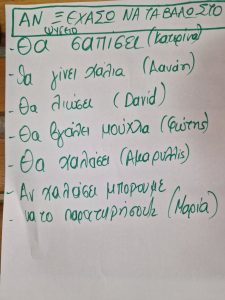 ΑΝ ΞΕΧΑΣΩ ΝΑ ΤΑ ΒΑΛΩ ΣΤΟ
ΨΥΓΕΙΟ
- Θα σαπίσει (Κατερίνα)
- Θα γίνει χάλια (Δανάη)
- Θα λιώσει (David)
- Θα βγάλει μούχλα (Φώτης)
- Θα χαλάσει (Αμαρυλλίς)
- Αν χαλάσει μπορούμε
να το παρατηρήσουμε (Μαρία)